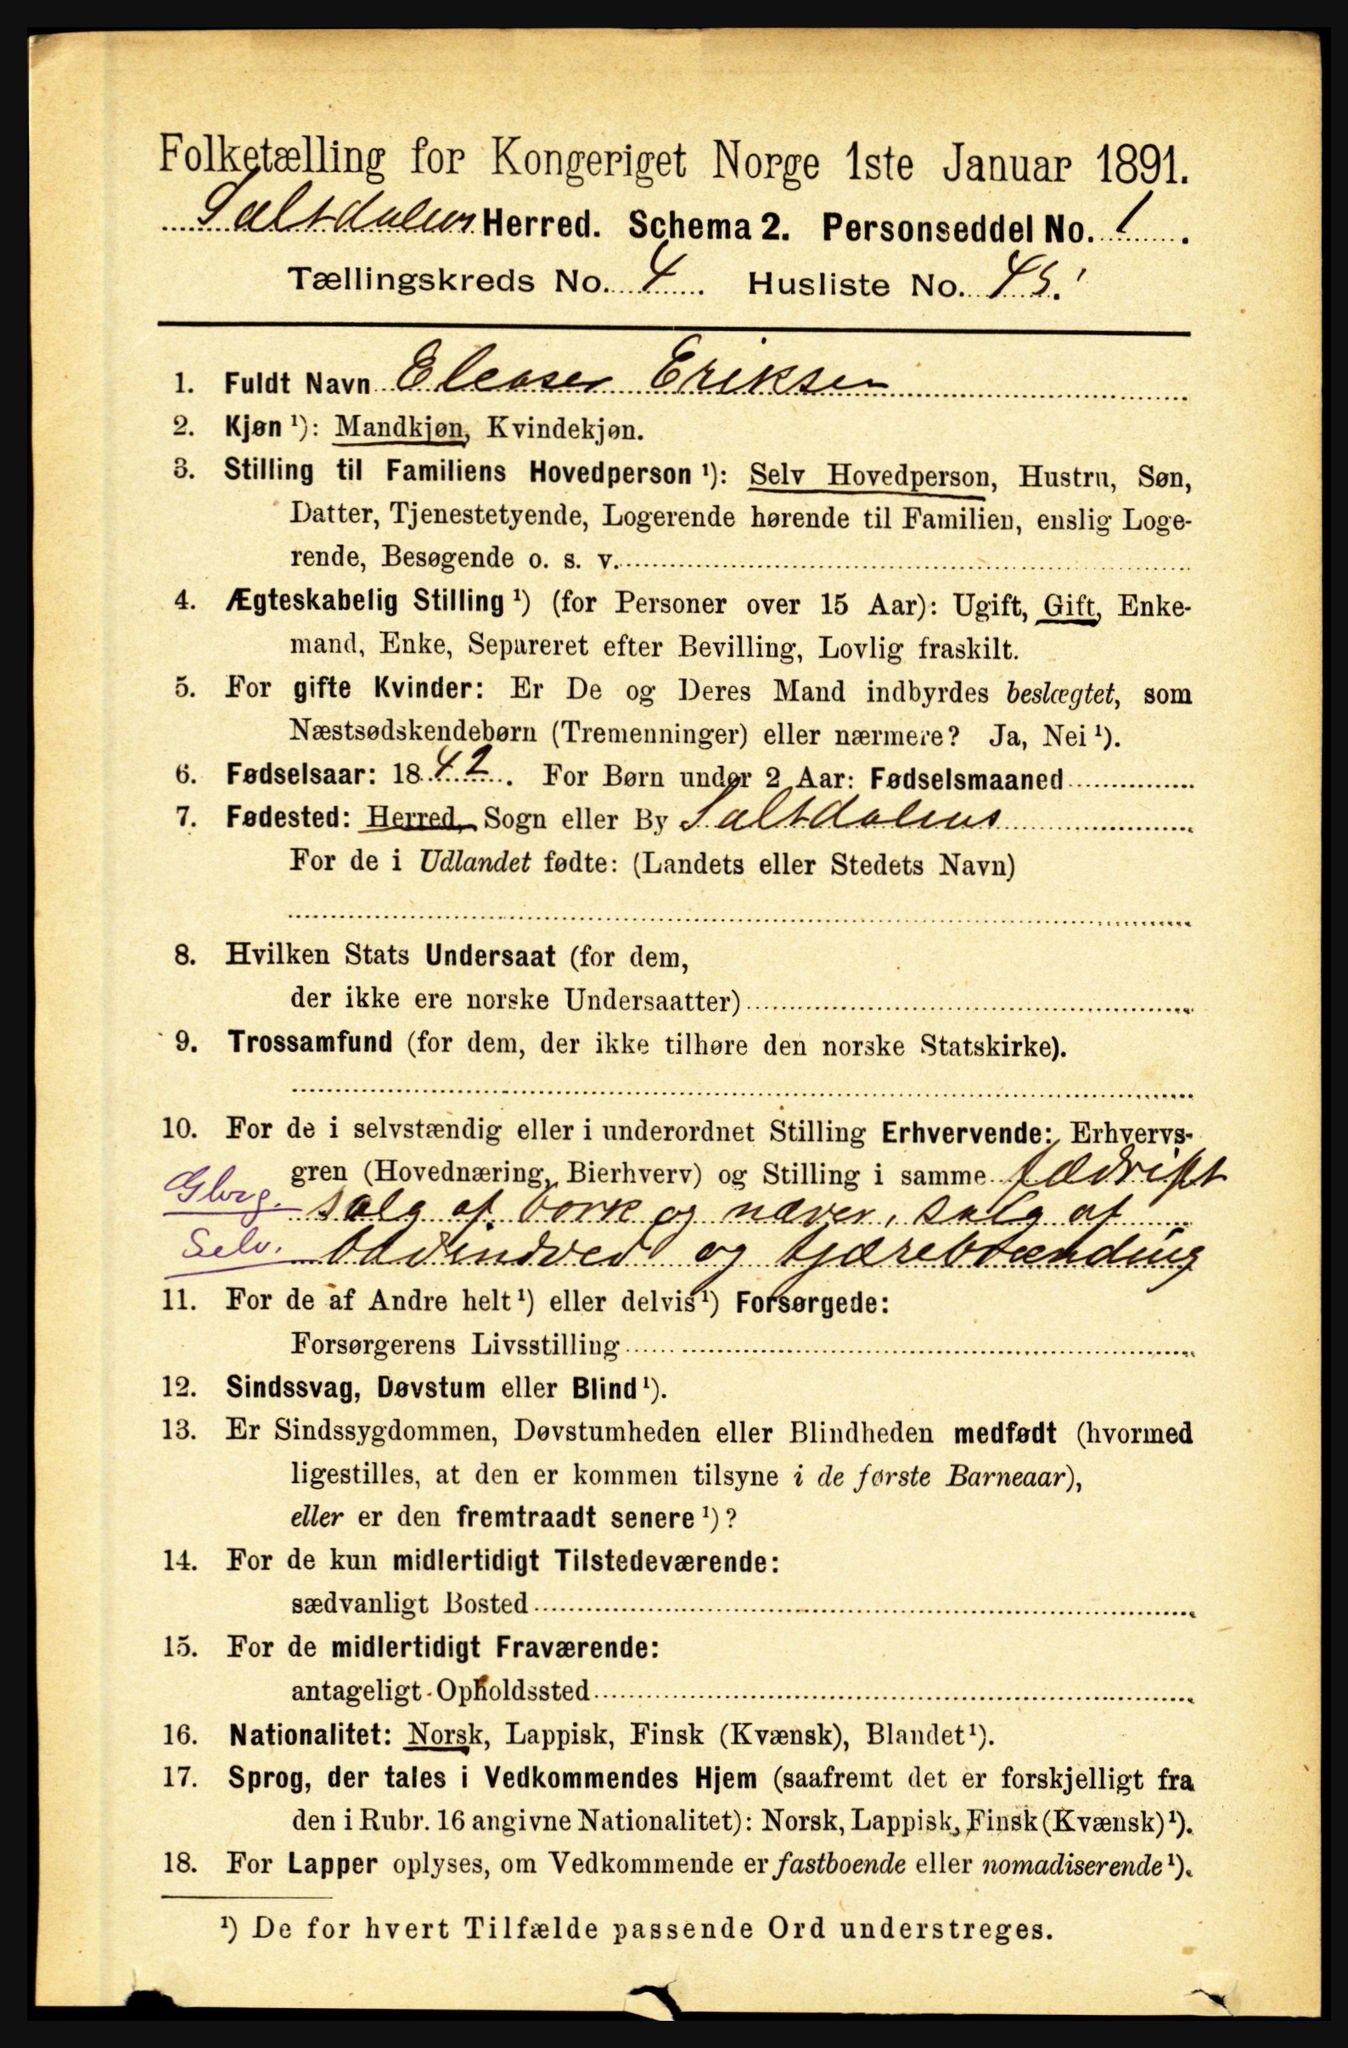 Folketælling for Kongeriget Norge 1ste Januar 1891.
Saltdalens Herred. Schema 2. Personseddel No. 1.
Tællingskreds No. 4. Husliste No. 45.
1. Fuldt Navn Eleaser Eriksen
2. Kjøn ¹): Mandkjøn, Kvindekjøn.
3. Stilling til Familiens Hovedperson ¹): Selv Hovedperson, Hustru, Søn,
Datter, Tjenestetyende, Logerende hørende til Familien, enslig Loge-
rende, Besøgende o. s. v.
4. Ægteskabelig Stilling ¹) (for Personer over 15 Aar): Ugift, Gift, Enke-
mand, Enke, Separeret efter Bevilling, Lovlig fraskilt.
5. For gifte Kvinder: Er De og Deres Mand indbyrdes beslægtet, som
Næstsødskendebørn (Tremenninger) eller nærmere? Ja, Nei ¹).
6. Fødselsaar: 1842. For Børn under 2 Aar: Fødselsmaaned
7. Fødested: Herred, Sogn eller By Saltdalens
For de i Udlandet fødte: (Landets eller Stedets Navn)
8. Hvilken Stats Undersaat (for dem,
der ikke ere norske Undersaatter)
9. Trossamfund (for dem, der ikke tilhøre den norske Statskirke).
10. For de i selvstændig eller i underordnet Stilling Erhvervende: Erhvervs-
gren (Hovednæring, Bierhverv) og Stilling i samme fædrift
Gbrg. salg af bork og næver, salg af
Selv. og tjærebrænding
11. For de af Andre helt ¹) eller delvis ¹) Forsørgede:
Forsørgerens Livsstilling
12. Sindssvag, Døvstum eller Blind ¹).
13. Er Sindssygdommen, Døvstumheden eller Blindheden medfødt (hvormed
ligestilles, at den er kommen tilsyne i de første Barneaar),
eller er den fremtraadt senere ¹)?
14. For de kun midlertidigt Tilstedeværende:
sædvanligt Bosted
15. For de midlertidigt Fraværende:
antageligt Opholdssted
16. Nationalitet: Norsk, Lappisk, Finsk (Kvænsk), Blandet ¹).
17. Sprog, der tales i Vedkommendes Hjem (saafremt det er forskjelligt fra
den i Rubr. 16 angivne Nationalitet): Norsk, Lappisk, Finsk (Kvænsk) ¹).
18. For Lapper oplyses, om Vedkommende er fastboende eller nomadiserende ¹).
¹) De for hvert Tilfælde passende Ord understreges.